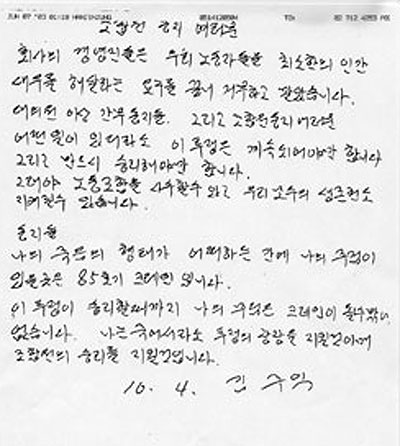 조합원 동지 여러분
회사의 경영진들은 우리 노동자들을 최소한의 인간
대우를 해달라는 요구를 끝내 거부하고 말았습니다.
그리고 조합원동지 여러분
어떤일이 있더라도 이 투쟁은 계속되어야만 합니다
그리고 반드시 승리해야만 합니다.
그래야 노동조합을 사수할수 있고 우리 모두의 생존권도
지켜질수 있습니다.
동지들
나의 죽음의 형태가 어떠하든 간에 나의 주검이
있을곳은 85호기 크레인 입니다.
이 투쟁이 승리할때까지 나의 무덤은 크레인이 될수밖에
없습니다. 나는 죽어서라도 투쟁의 광장을 지킬것이며
조합원의 승리를 지킬것입니다.
10. 4. 김 주익